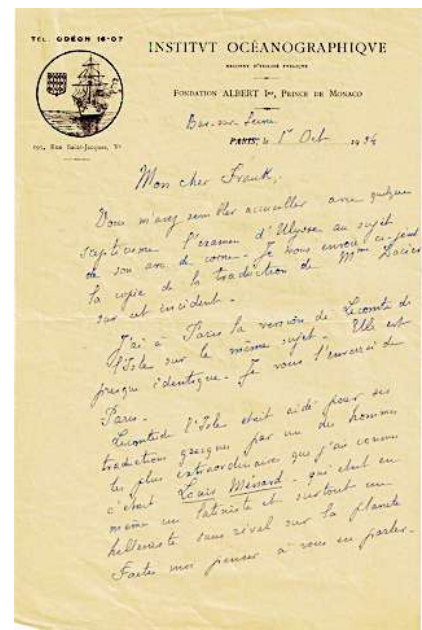 TEL. ODÉON 16-07
INSTITVT OCÉANOGRAPHIQVE
FONDATION ALBERT Ier, PRINCE DE MONACO
Bar-sur-Seine
195, Rue Saint-Jacques, Ve
PARIS, le 1er Oct 1934
Mon cher Frank,
Vous m'avez semblé accueillir avec quelque
scepticisme l'examen d'Ulysse au sujet
de son arc de corne. Je vous envoie ci-joint
la copie de la traduction de Mme Dacier
sur cet incident.
J'ai à Paris la version de Leconte de
l'Isle sur le même sujet. Elle est
presque identique. Je vous l'enverrai de
Paris.
Leconte de l'Isle était aidé pour ses
traductions grecques par un des hommes
les plus extraordinaires que j'ai connus
c'était Louis Ménard - qui était en
même un latiniste et surtout un
helleniste sans rival sur la planète
Faites moi penser à vous en parler.